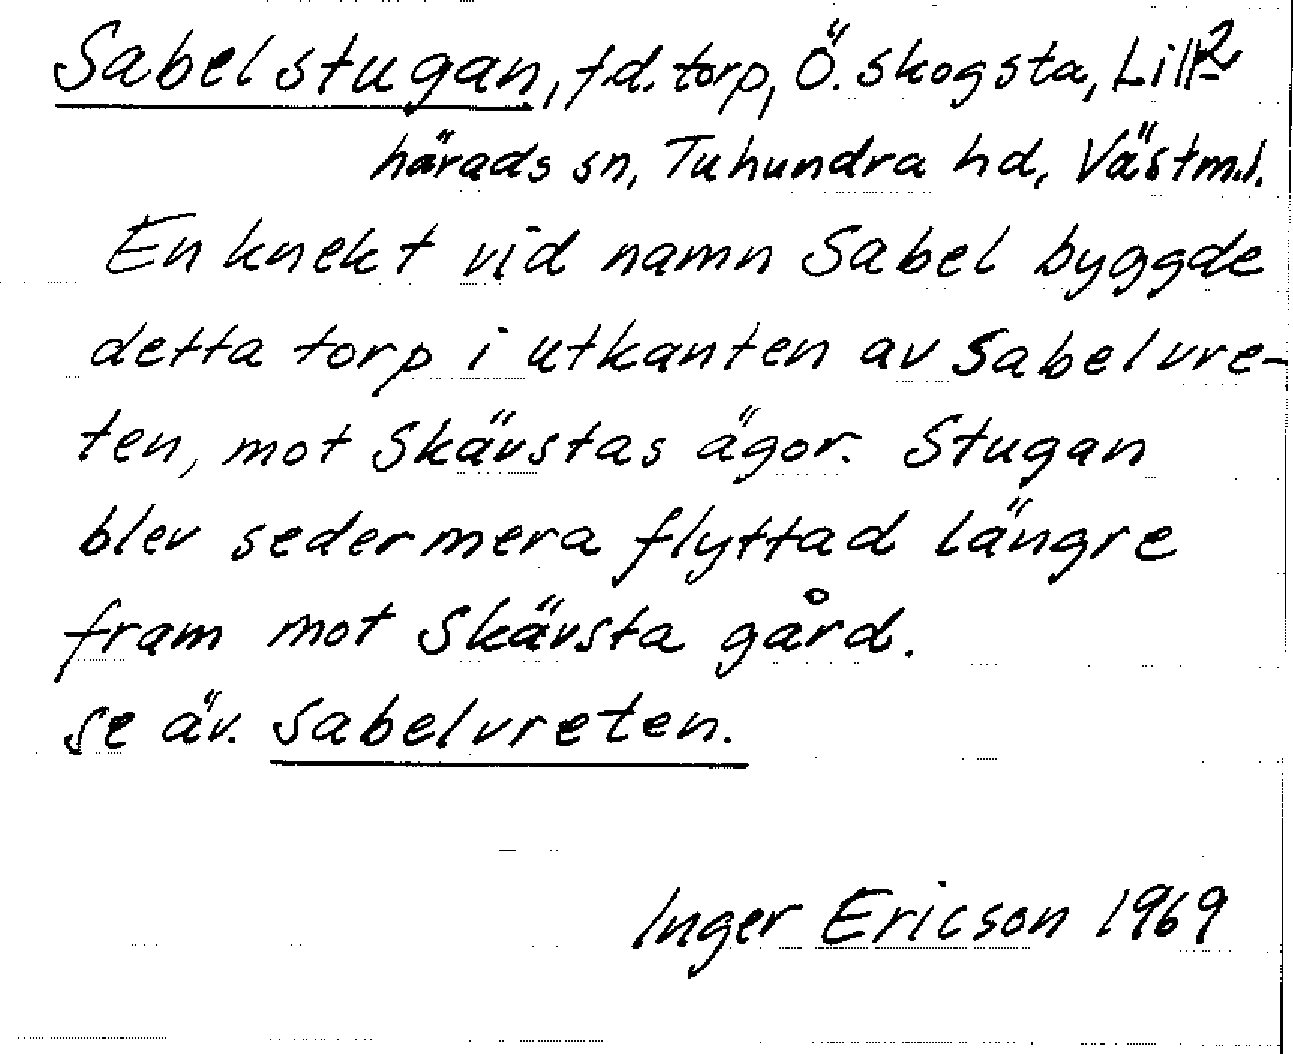 Sabelstugan, f.d. torp, Ö. Skogsta, Lill-
härads sn, Tuhundra hd, Västm.l.
En knekt vid namn Sabel byggde
detta torp i utkanten av Sabelvre-
ten, mot Skävstas ägor. Stugan
blev sedermera flyttad längre
fram mot Skävsta gård.
se äv. Sabelvreten.
Inger Ericson 1969